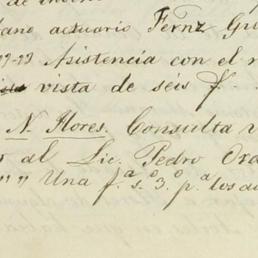 ano actuario Fernz
Asistencia con el
vista de séis f.
N. Flores. Consulta
al Lic. Pedro
" " Una f.ª s. 3.º p.ª los